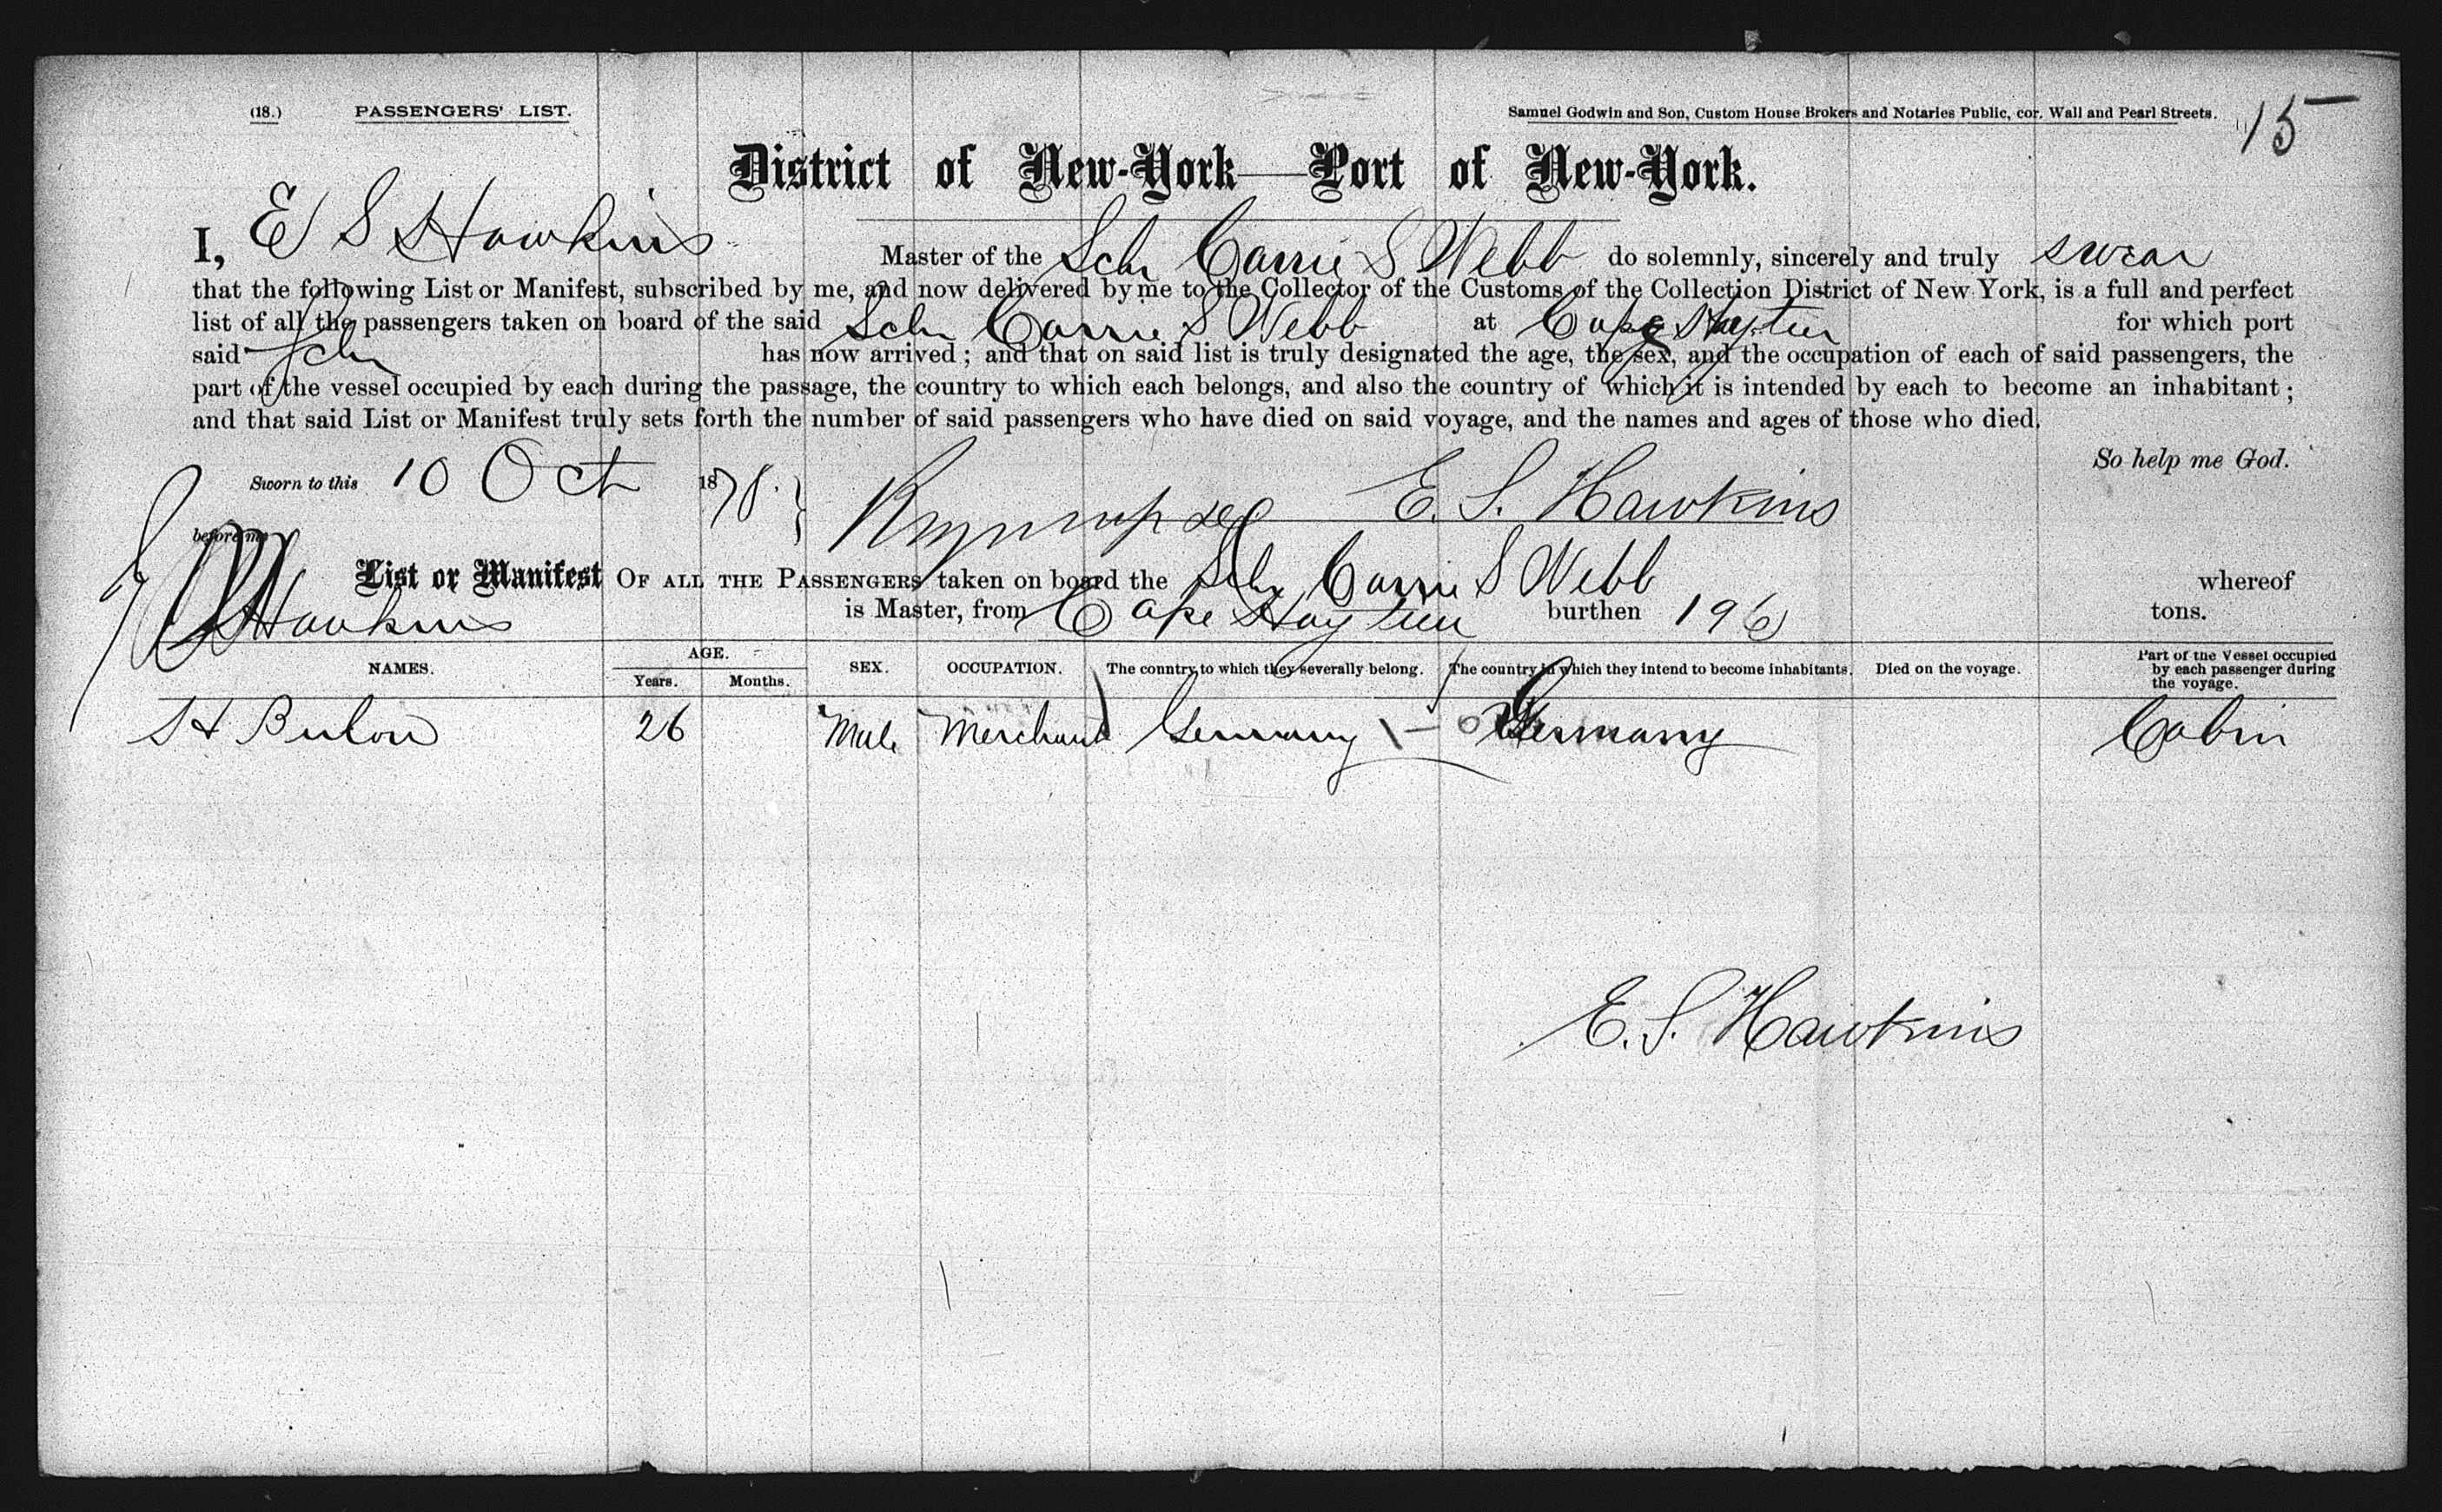 (18.) PASSENGERS' LIST. Samuel Godwin and Son, Custom House Brokers and Notaries Public, cor. Wall and Pearl Streets. 15
District of New-York—Port of New-York.
I, E S Hawkins Master of the Schr Carrie S Webb do solemnly, sincerely and truly swear
that the following List or Manifest, subscribed by me, and now delivered by me to the Collector of the Customs of the Collection District of New York, is a full and perfect
list of all the passengers taken on board of the said Schr Carrie S Webb at Cape Haytien for which port
said Schr has now arrived; and that on said list is truly designated the age, the sex, and the occupation of each of said passengers, the
part of the vessel occupied by each during the passage, the country to which each belongs, and also the country of which it is intended by each to become an inhabitant;
and that said List or Manifest truly sets forth the number of said passengers who have died on said voyage, and the names and ages of those who died.
So help me God.
Sworn to this 10 Oct 1878. E. S. Hawkins
before me
List or Manifest OF ALL THE PASSENGERS taken on board the Schr Carrie S Webb whereof
E S Hawkins is Master, from Cape Haytien burthen 196 tons.
NAMES. AGE. Years. Months. SEX. OCCUPATION. The country to which they severally belong. The country in which they intend to become inhabitants. Died on the voyage. Part of the Vessel occupied by each passenger during the voyage.
H 26 Male Merchant Germany Germany Cabin
E. S. Hawkins